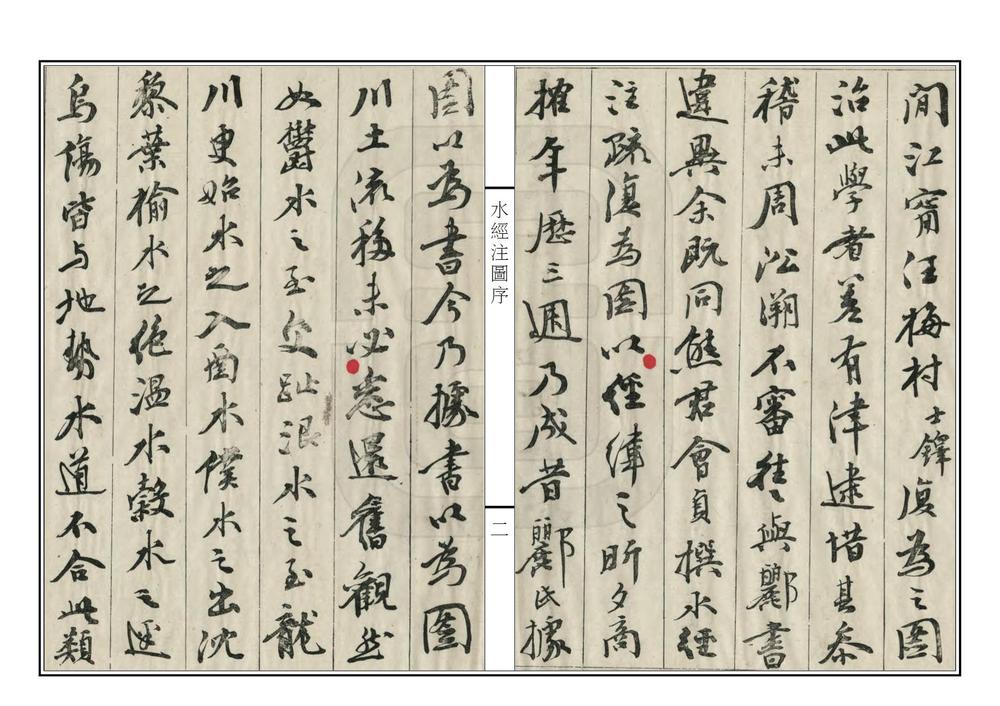 閒江甯汪梅村士鐸復為之圖
治此學者差有津逮惜其參
稽未周沿溯不審往〻與酈書
違異余既同熊君會貞撰水經
注疏復為圖以經緯之昕夕商
搉年歷三週乃成昔酈氏據
水經注圖序
二
圖以為書今乃據書以為圖
川土流移未必悉還舊觀然
如鬱水之至交趾泿水之至龍
川更始水之入酉水僕水之出沈
黎葉榆水之絶溫水穀水之逕
烏傷皆与地勢水道不合此類